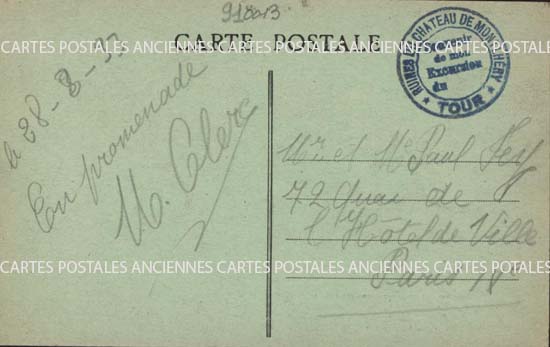 918013
CARTE POSTALE
CARTES POSTALES ANCIENNES CARTES POSTALES ANCIENNES CARTES POSTALES ANCIENNES
RUINES DU CHATEAU DE MONTLHÉRY
Souvenir
de mon
Excursion
du
★ TOUR ★
le 28-8-33
En promenade
M. Clerc
Mr et Me Paul Fey
72 Quai de
l'Hôtel de Ville
Paris IVe
CARTES POSTALES ANCIENNES CARTES POSTALES ANCIENNES CARTES POSTALES ANCIENNES